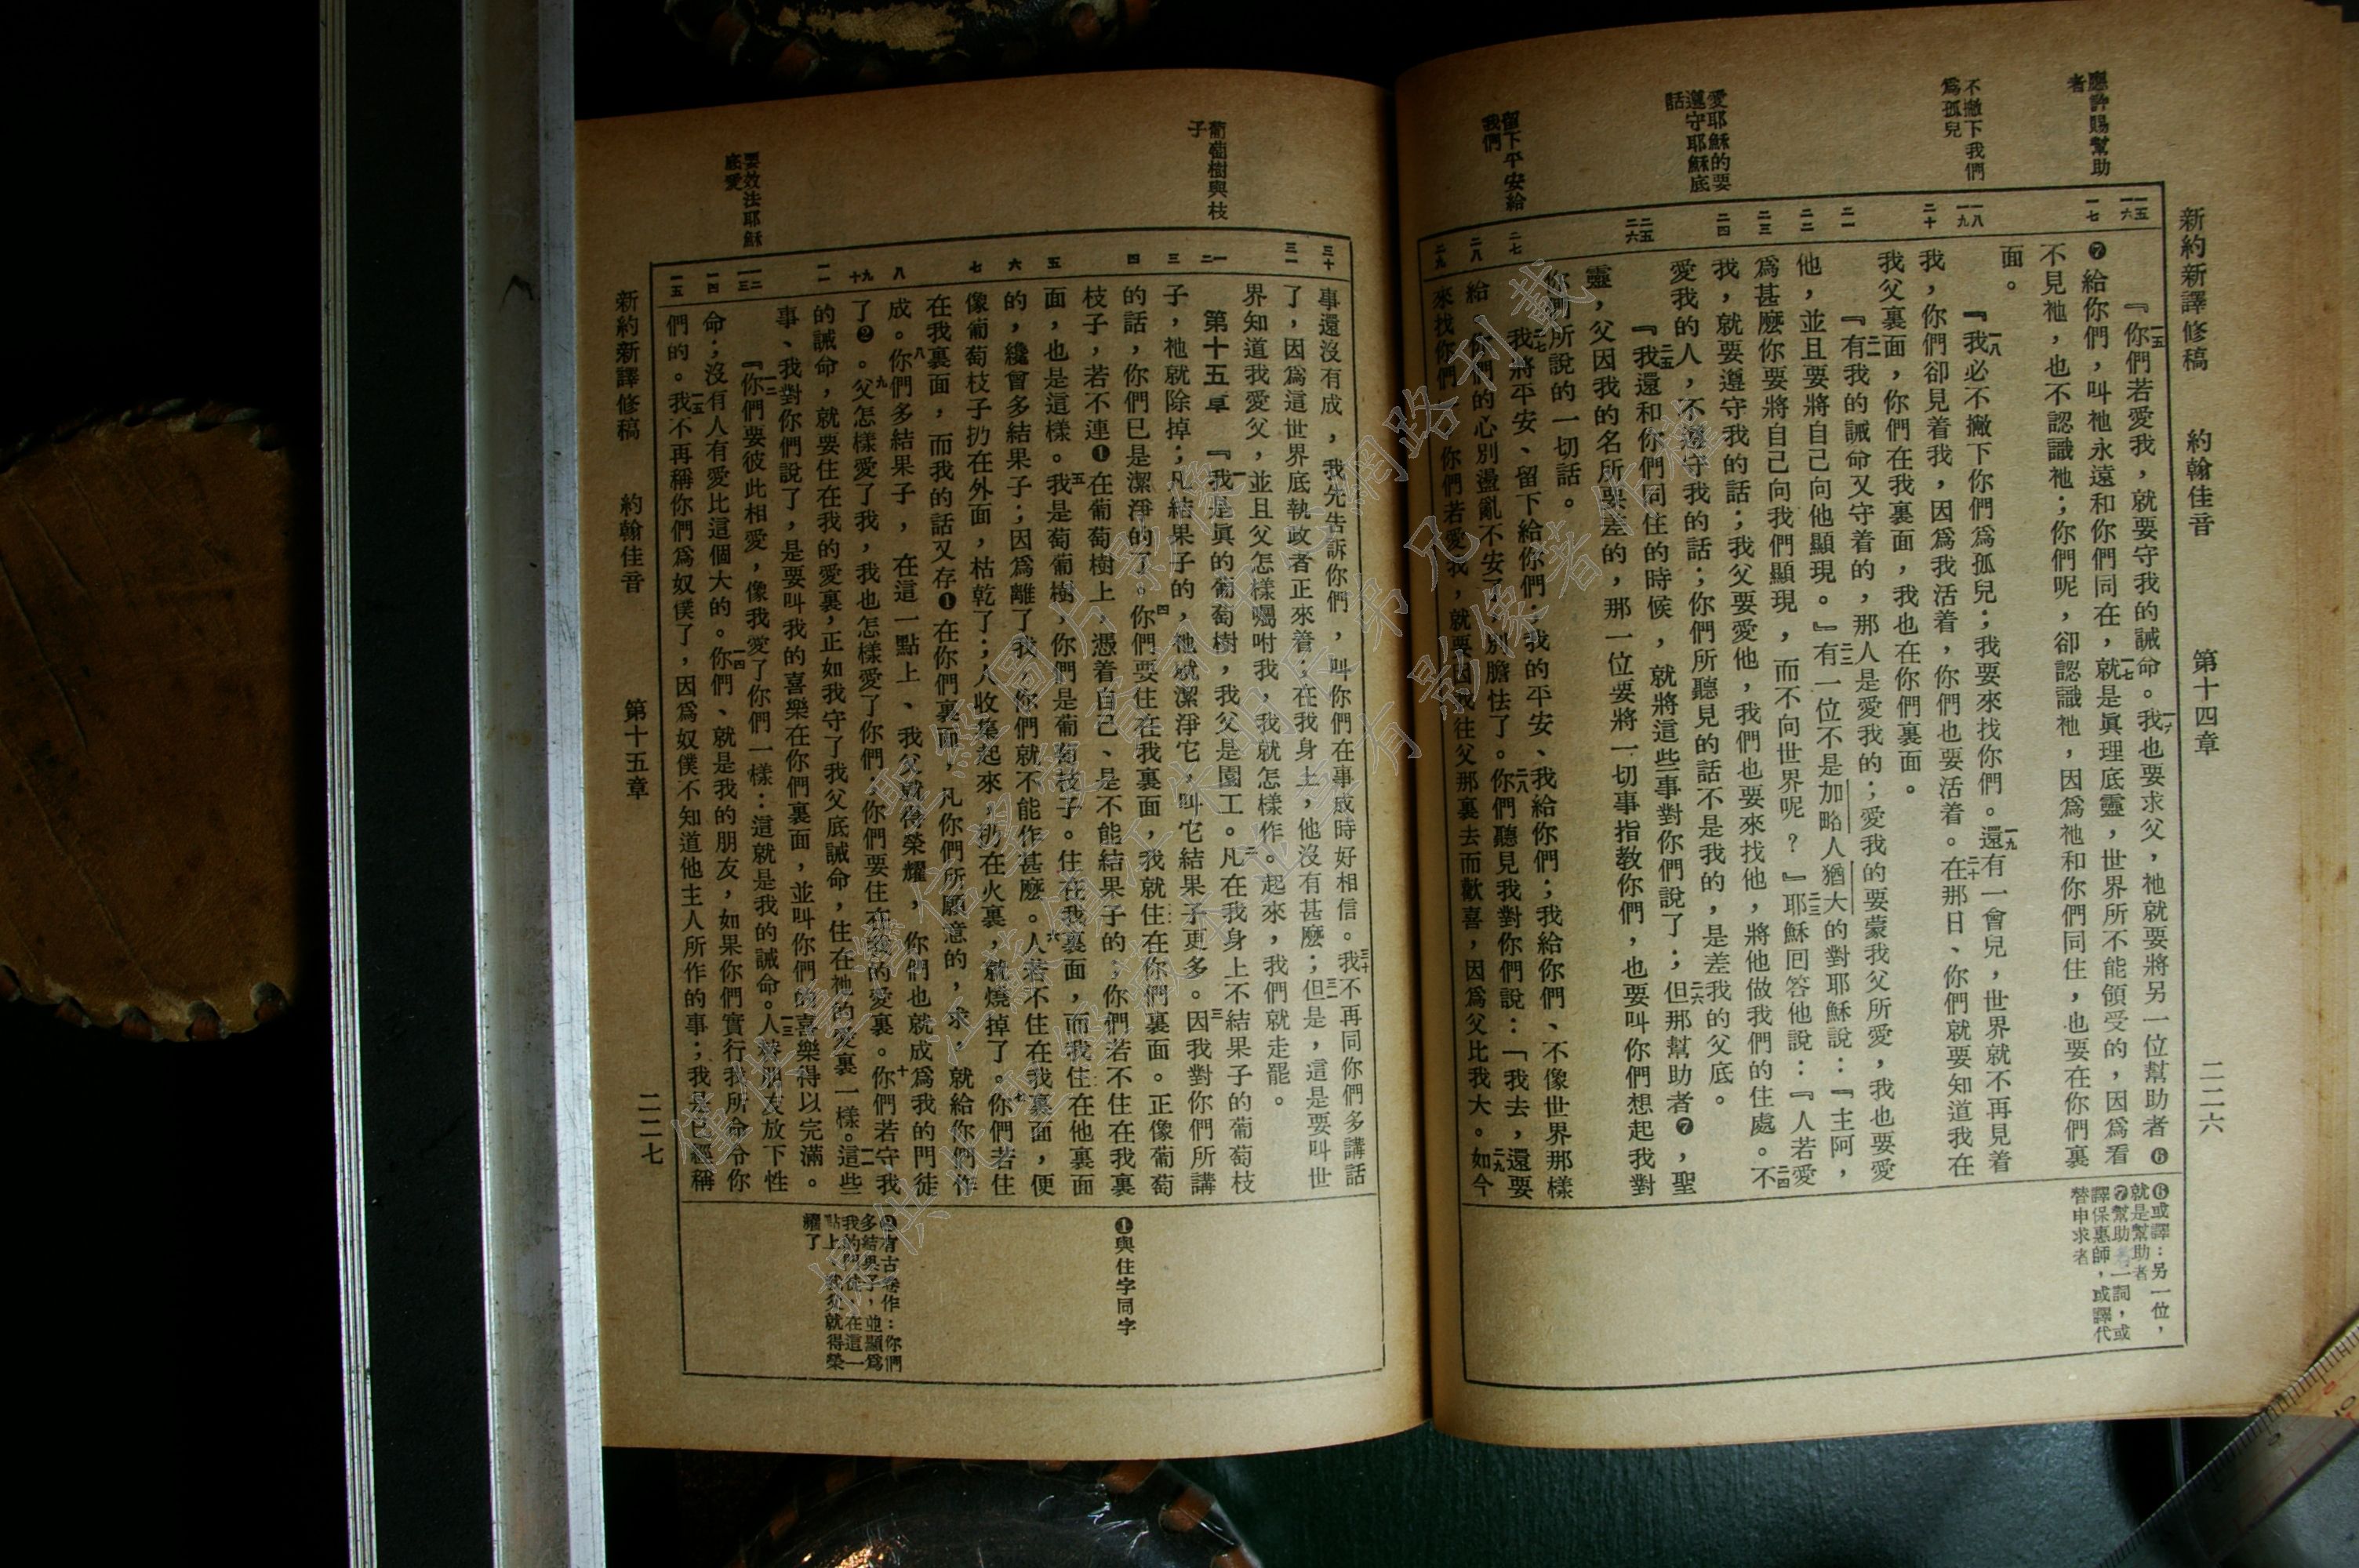 新約新譯修稿　約翰佳音　第十四章　二二六
應許賜幫助
者
不撇下我們
爲孤兒
愛耶穌的要
遵守耶穌底
話
留下平安給
我們
一五
一六
一七
一八
一九
二十
二一
二二
二三
二四
二五
二六
二七
二八
二九
『一五你們若愛我，就要守我的誡命。一六我也要求父，祂就要將另一位幫助者❻
❼給你們，叫祂永遠和你們同在，一七就是眞理底靈，世界所不能領受的，因爲看
不見祂，也不認識祂；你們呢，卻認識祂，因爲祂和你們同住，也要在你們裏
面。
『一八我必不撇下你們爲孤兒；我要來找你們。一九還有一會兒，世界就不再見着
我，你們卻見着我，因爲我活着，你們也要活着。二十在那日、你們就要知道我在
我父裏面，你們在我裏面，我也在你們裏面。
『二一有我的誡命又守着的，那人是愛我的；愛我的要蒙我父所愛，我也要愛
他，並且要將自己向他顯現。』二二有一位不是加略人猶大的對耶穌說：『主阿，
爲甚麼你要將自己向我們顯現，而不向世界呢？』二三耶穌回答他說：『人若愛
我，就要遵守我的話；我父要愛他，我們也要來找他，將他做我們的住處。二四不
愛我的人，不遵守我的話；你們所聽見的話不是我的，是差我的父底。
『二五我還和你們同住的時候，就將這些事對你們說了；二六但那幫助者❼，聖
靈，父因我的名所要差的，那一位要將一切事指教你們，也要叫你們想起我對
你們所說的一切話。
二七我將平安、留下給你們；我的平安、我給你們；我給你們、不像世界那樣
給。你們的心別盪亂不安了，別膽怯了。二八你們聽見我對你們說：「我去，還要
來找你們。」你們若愛我，就要因我往父那裏去而歡喜，因爲父比我大。二九如今
❻或譯：另一位，
就是幫助者
❼幫助者一詞，或
譯保惠師，或譯代
替申求者
葡萄樹與枝
子
要效法耶穌
底愛
三十
三一
一
二
三
四
五
六
七
八
九
十
一一
一二
一三
一四
一五
事還沒有成，我先告訴你們，叫你們在事成時好相信。三十我不再同你們多講話
了，因爲這世界底執政者正來着；在我身上，他沒有甚麼；三一但是，這是要叫世
界知道我愛父，並且父怎樣囑咐我，我就怎樣作。起來，我們就走罷。
第十五章　『一我是眞的葡萄樹，我父是園工。二凡在我身上不結果子的葡萄枝
子，祂就除掉；凡結果子的，祂就潔淨它，叫它結果子更多。三因我對你們所講
的話，你們已是潔淨的了。四你們要住在我裏面，我就住在你們裏面。正像葡萄
枝子，若不連❶在葡萄樹上，憑着自己、是不能結果子的；你們若不住在我裏
面，也是這樣。五我是萄葡樹，你們是葡萄枝子。住在我裏面，而我住在他裏面
的，纔會多結果子；因爲離了我，你們就不能作甚麼。六人若不住在我裏面，便
像葡萄枝子扔在外面，枯乾了；人收集起來，扔在火裏，就燒掉了。七你們若住
在我裏面，而我的話又存❶在你們裏面，凡你們所願意的，求，就給你們作
成。八你們多結果子，在這一點上、我父就得榮耀，你們也就成爲我的門徒
了❷。九父怎樣愛了我，我也怎樣愛了你們，你們要住在我的愛裏。十你們若守我
的誡命，就要住在我的愛裏，正如我守了我父底誡命，住在祂的愛裏一樣。一一這些
事、我對你們說了，是要叫我的喜樂在你們裏面，並叫你們的喜樂得以完滿。
『一二你們要彼此相愛，像我愛了你們一樣：這就是我的誡命。一三人替朋友放下性
命；沒有人有愛比這個大的。一四你們、就是我的朋友，如果你們實行我所命令你
們的。一五我不再稱你們爲奴僕了，因爲奴僕不知道他主人所作的事；我是已經稱
❶與住字同字
❷有古卷作：你們
多結果子，並顯爲
我的門徒，在這一
點上、我父就得榮
耀了
新約新譯修稿　約翰佳音　第十五章　二二七